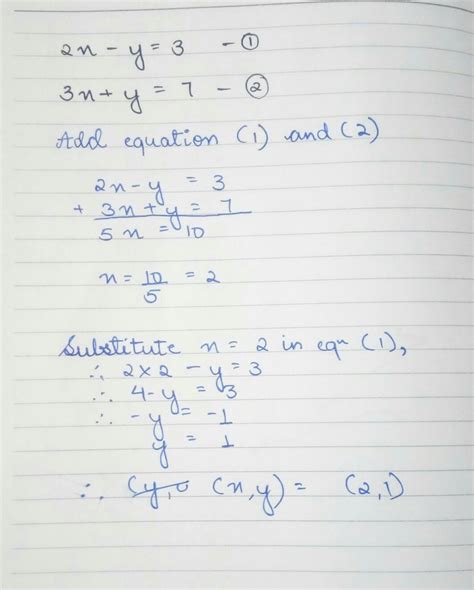 2x - y = 3 - ①
3x + y = 7 - ②
Add equation (1) and (2)
2x - y = 3
+ 3x + y = 7
5x = 10
x = 10/5 = 2
Substitute x = 2 in eqn (1),
∴ 2×2 - y = 3
∴ 4 - y = 3
∴ -y = -1
y = 1
∴ (x,y) = (2,1)